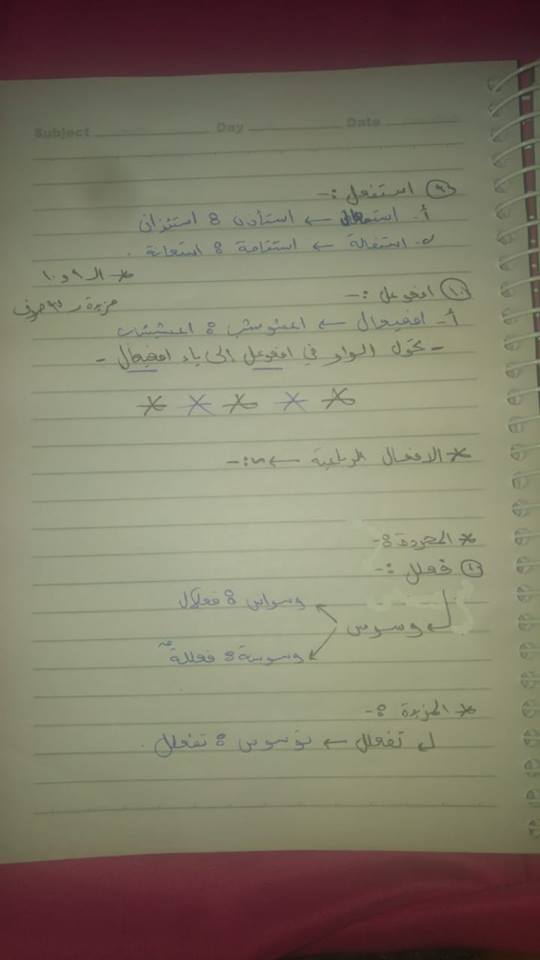 Subject Day Date
٩) استفعل :-
أ- استفعال ← استأذن : استئذان
ب- استفالة ← استقامة : استعانة .
* الـ ٩ و ١٠
مزيدة بـ ٣ حرف
١٠) افعوعل :-
أ- افعيعال ← اعشوشب : اعشيشاب
- تحول الواو في افعوعل إلى ياء افعيعال -
* * * * *
* الافعال الرباعية ← :-
* المجردة :-
١) فعلل :-
وسواس : فعلال
وسوس
وسوسة : فعللة
* المزيدة :-
تفعلل ← توسوس : تفعلل .